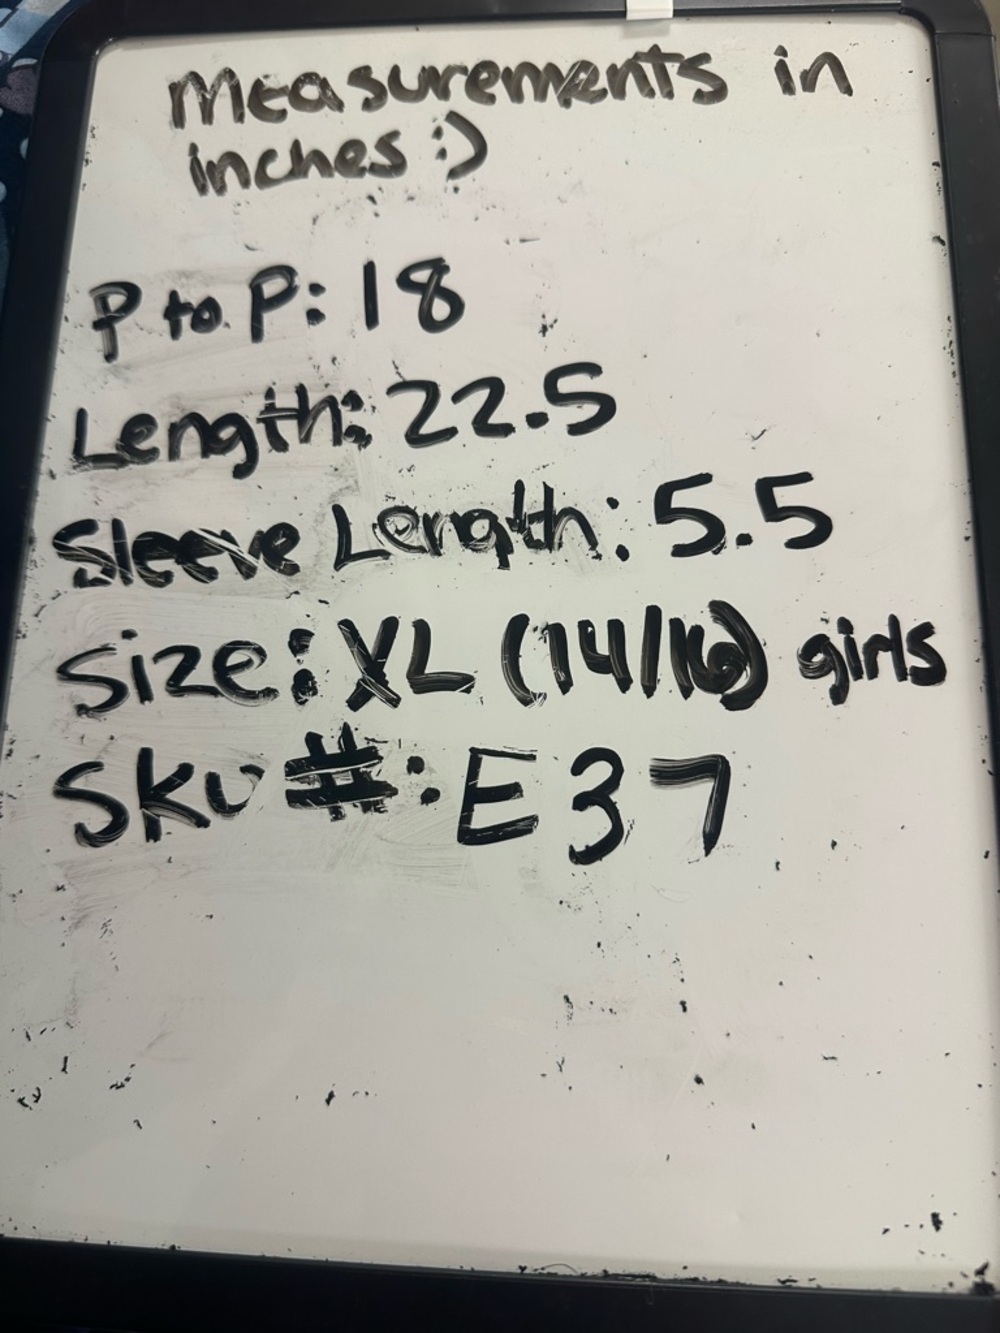 Measurements in
inches :)
P to P: 18
Length: 22.5
Sleeve Length: 5.5
Size: XL (14/16) girls
SKU #: E37